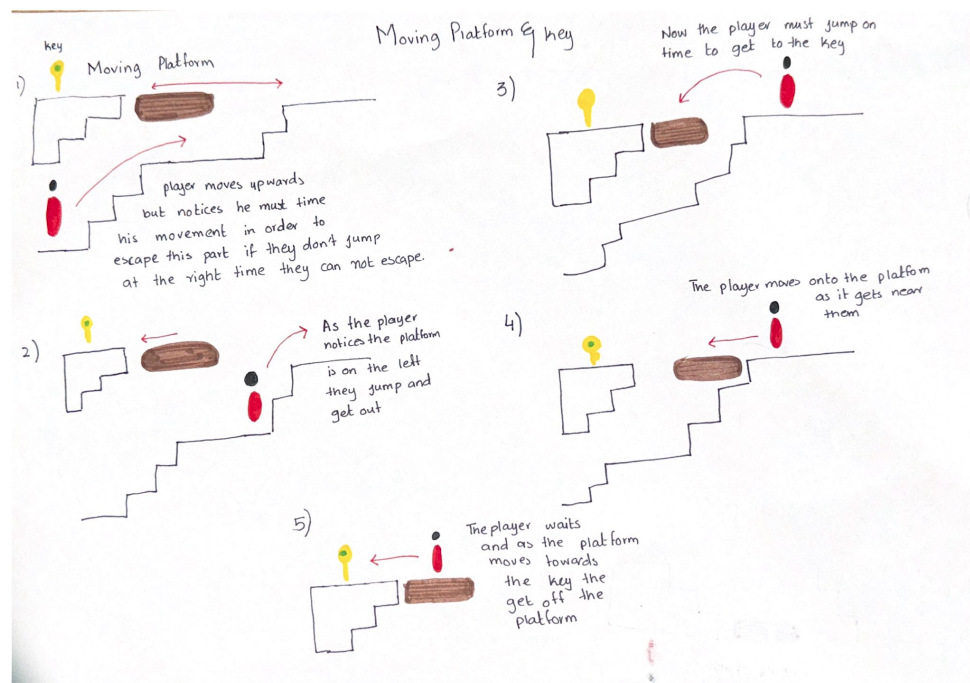 Moving Platform & key
1)
key
Moving Platform
player moves upwards
but notices he must time
his movement in order to
escape this part if they don't jump
at the right time they can not escape.
2)
As the player
notices the platform
is on the left
they jump and
get out
3)
Now the player must jump on
time to get to the key
4)
The player moves onto the platfom
as it gets near
them
5)
The player waits
and as the platform
moves towards
the key the
get off the
platform